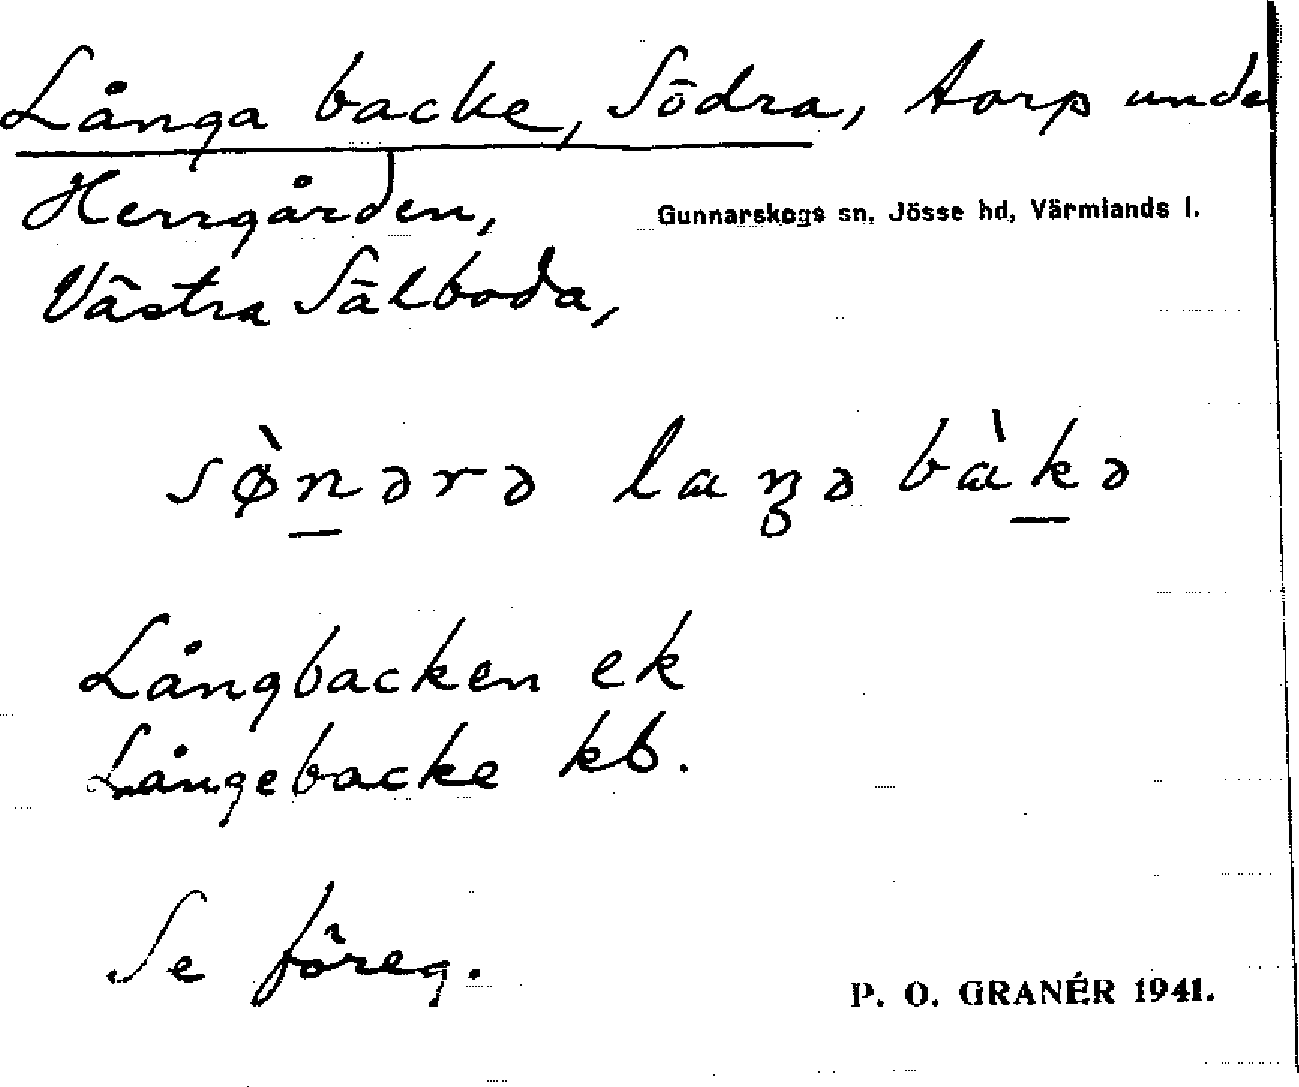 Långa backe, Södra, torp unde
Herrgården,
Gunnarskogs sn, Jösse hd, Värmlands l.
Västra Sälboda,
sø̀n̲ərə laŋə bàk̲ə
Långbacken ek
Långebacke kb.
Se föreg.
P. O. GRANÉR 1941.